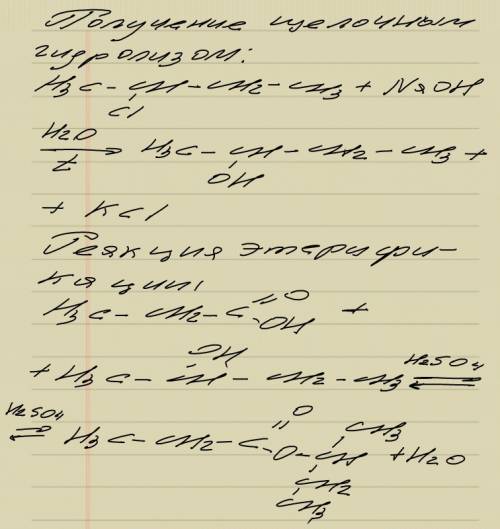 Получение щелочным
гидролизом:
H3C - CH - CH2 - CH3 + NaOH
Cl
H2O
t
H3C - CH - CH2 - CH3 +
OH
+ KCl
Реакция этерифи-
кации:
H3C - CH2 - C
=O
OH
+
OH
+ H3C - CH - CH2 - CH3
H2SO4
H2SO4
H3C - CH2 - C
O
O - CH
CH3
+ H2O
CH2
CH3